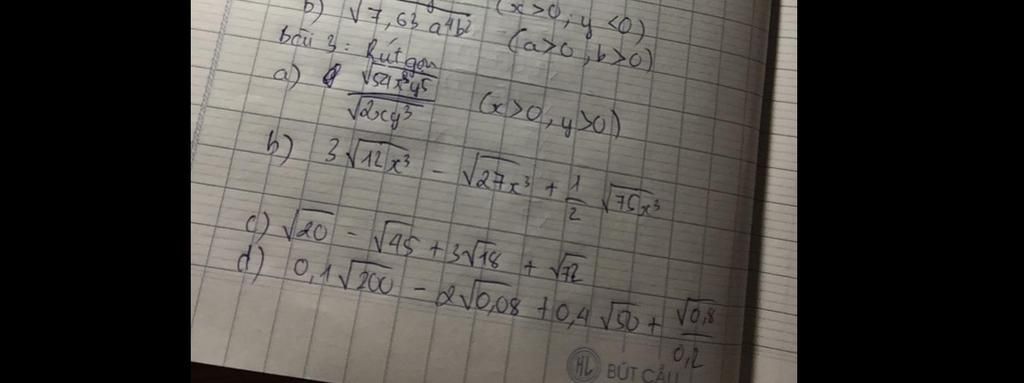 b) √7,63 a⁴b² (a>0, b>0)
(x>0, y<0)
bài 3: Rút gọn
a) √(54x³y⁵) / √(2xy³) (x>0, y>0)
b) 3√12x³ - √27x³ + 1/2 √75x³
c) √20 - √45 + 3√18 + √72
d) 0,1√200 - 2√0,08 + 0,4√50 + √0,8 / 0,2
HL BÚT CẦU